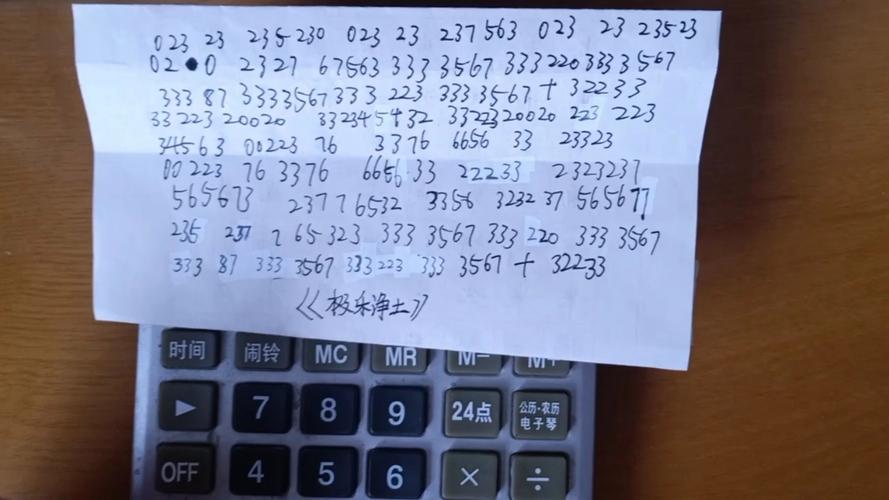 023 23 235 230 023 23 237 563 023 23 23523
02●0 2327 67563 333 3567 333 220 333 3567
333 87 333 3567 333 223 333 3567 + 32233
33 223 20020 332345432 33 223 20020 223 223
345 63 00223 76 3376 6656 33 23323
00 223 76 3376 6656 33 22233 2323237
565673 23776532 3356 3232 37 565677
235 237 7 65 323 333 3567 333 220 333 3567
333 87 333 3567 333 223 333 3567 + 32233
《极乐净土》
时间 闹铃 MC MR M- M+
▶ 7 8 9 24点 公历·农历
电子琴
OFF 4 5 6 × ÷